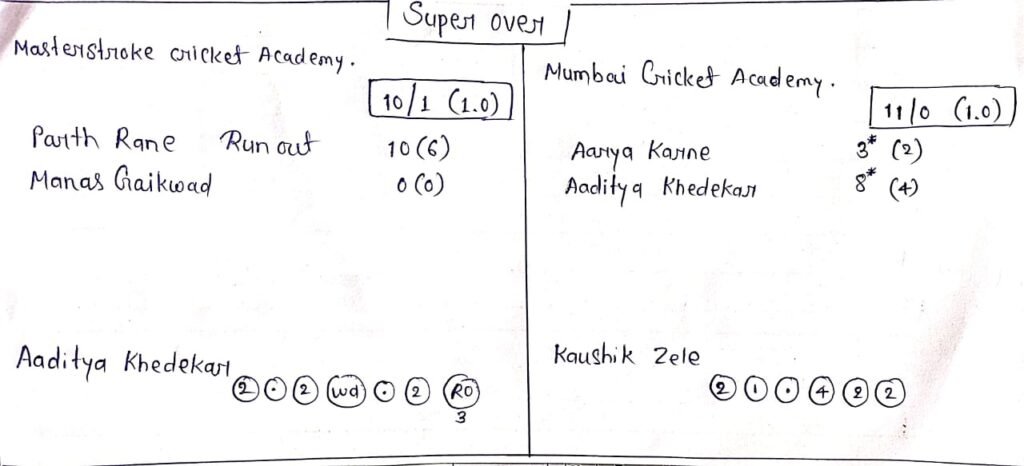 Super over
Masterstroke cricket Academy.
10/1 (1.0)
Parth Rane Run out 10 (6)
Manas Gaikwad 0 (0)
Aaditya Khedekar
2 • 2 wd • 2 RO
3
Mumbai Cricket Academy.
11/0 (1.0)
Aarya Karne 3* (2)
Aaditya Khedekar 8* (4)
Kaushik Zele
2 1 • 4 2 2